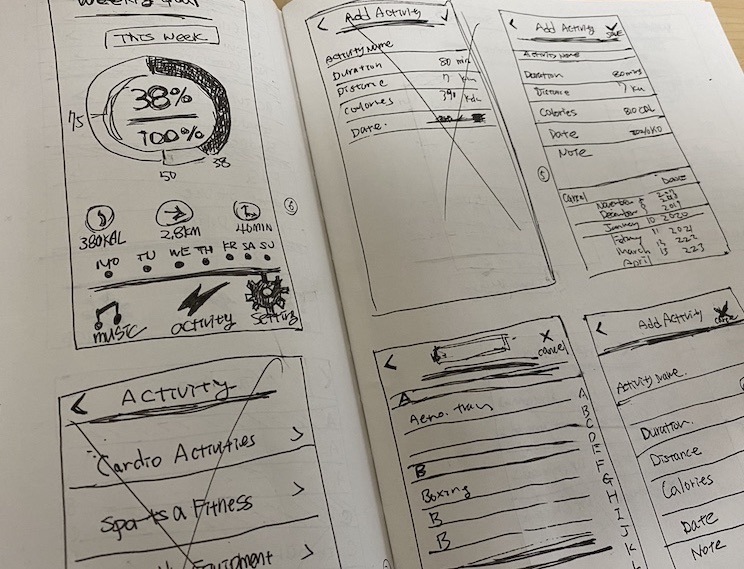 Weekly Goal
This Week
38%
100%
75
50
38
380KAL
2.8KM
40MIN
MO TU WE TH FR SA SU
MUSIC
activity
Setting
< ACTIVITY
Cardio Activities >
Sports a Fitness >
Equipment >
6
< Add Activity
Activity Name
Duration 30 min
Distance 7 km
Calories
Date.
< Add Activity SAVE
Activity Name
Duration
Distance 7 km
Calories
Date
Note
5
Date
Cancel
November
December 9 2019
January 10 2020
11 2021
march 12 222
April 13 223
<
X
cancel
A
Aero. train
B
Boxing
B
B
A
B
C
D
E
F
G
H
I
J
K
L
< Add Activity
Activity Name.
Duration.
Distance
Calories
Date
Note